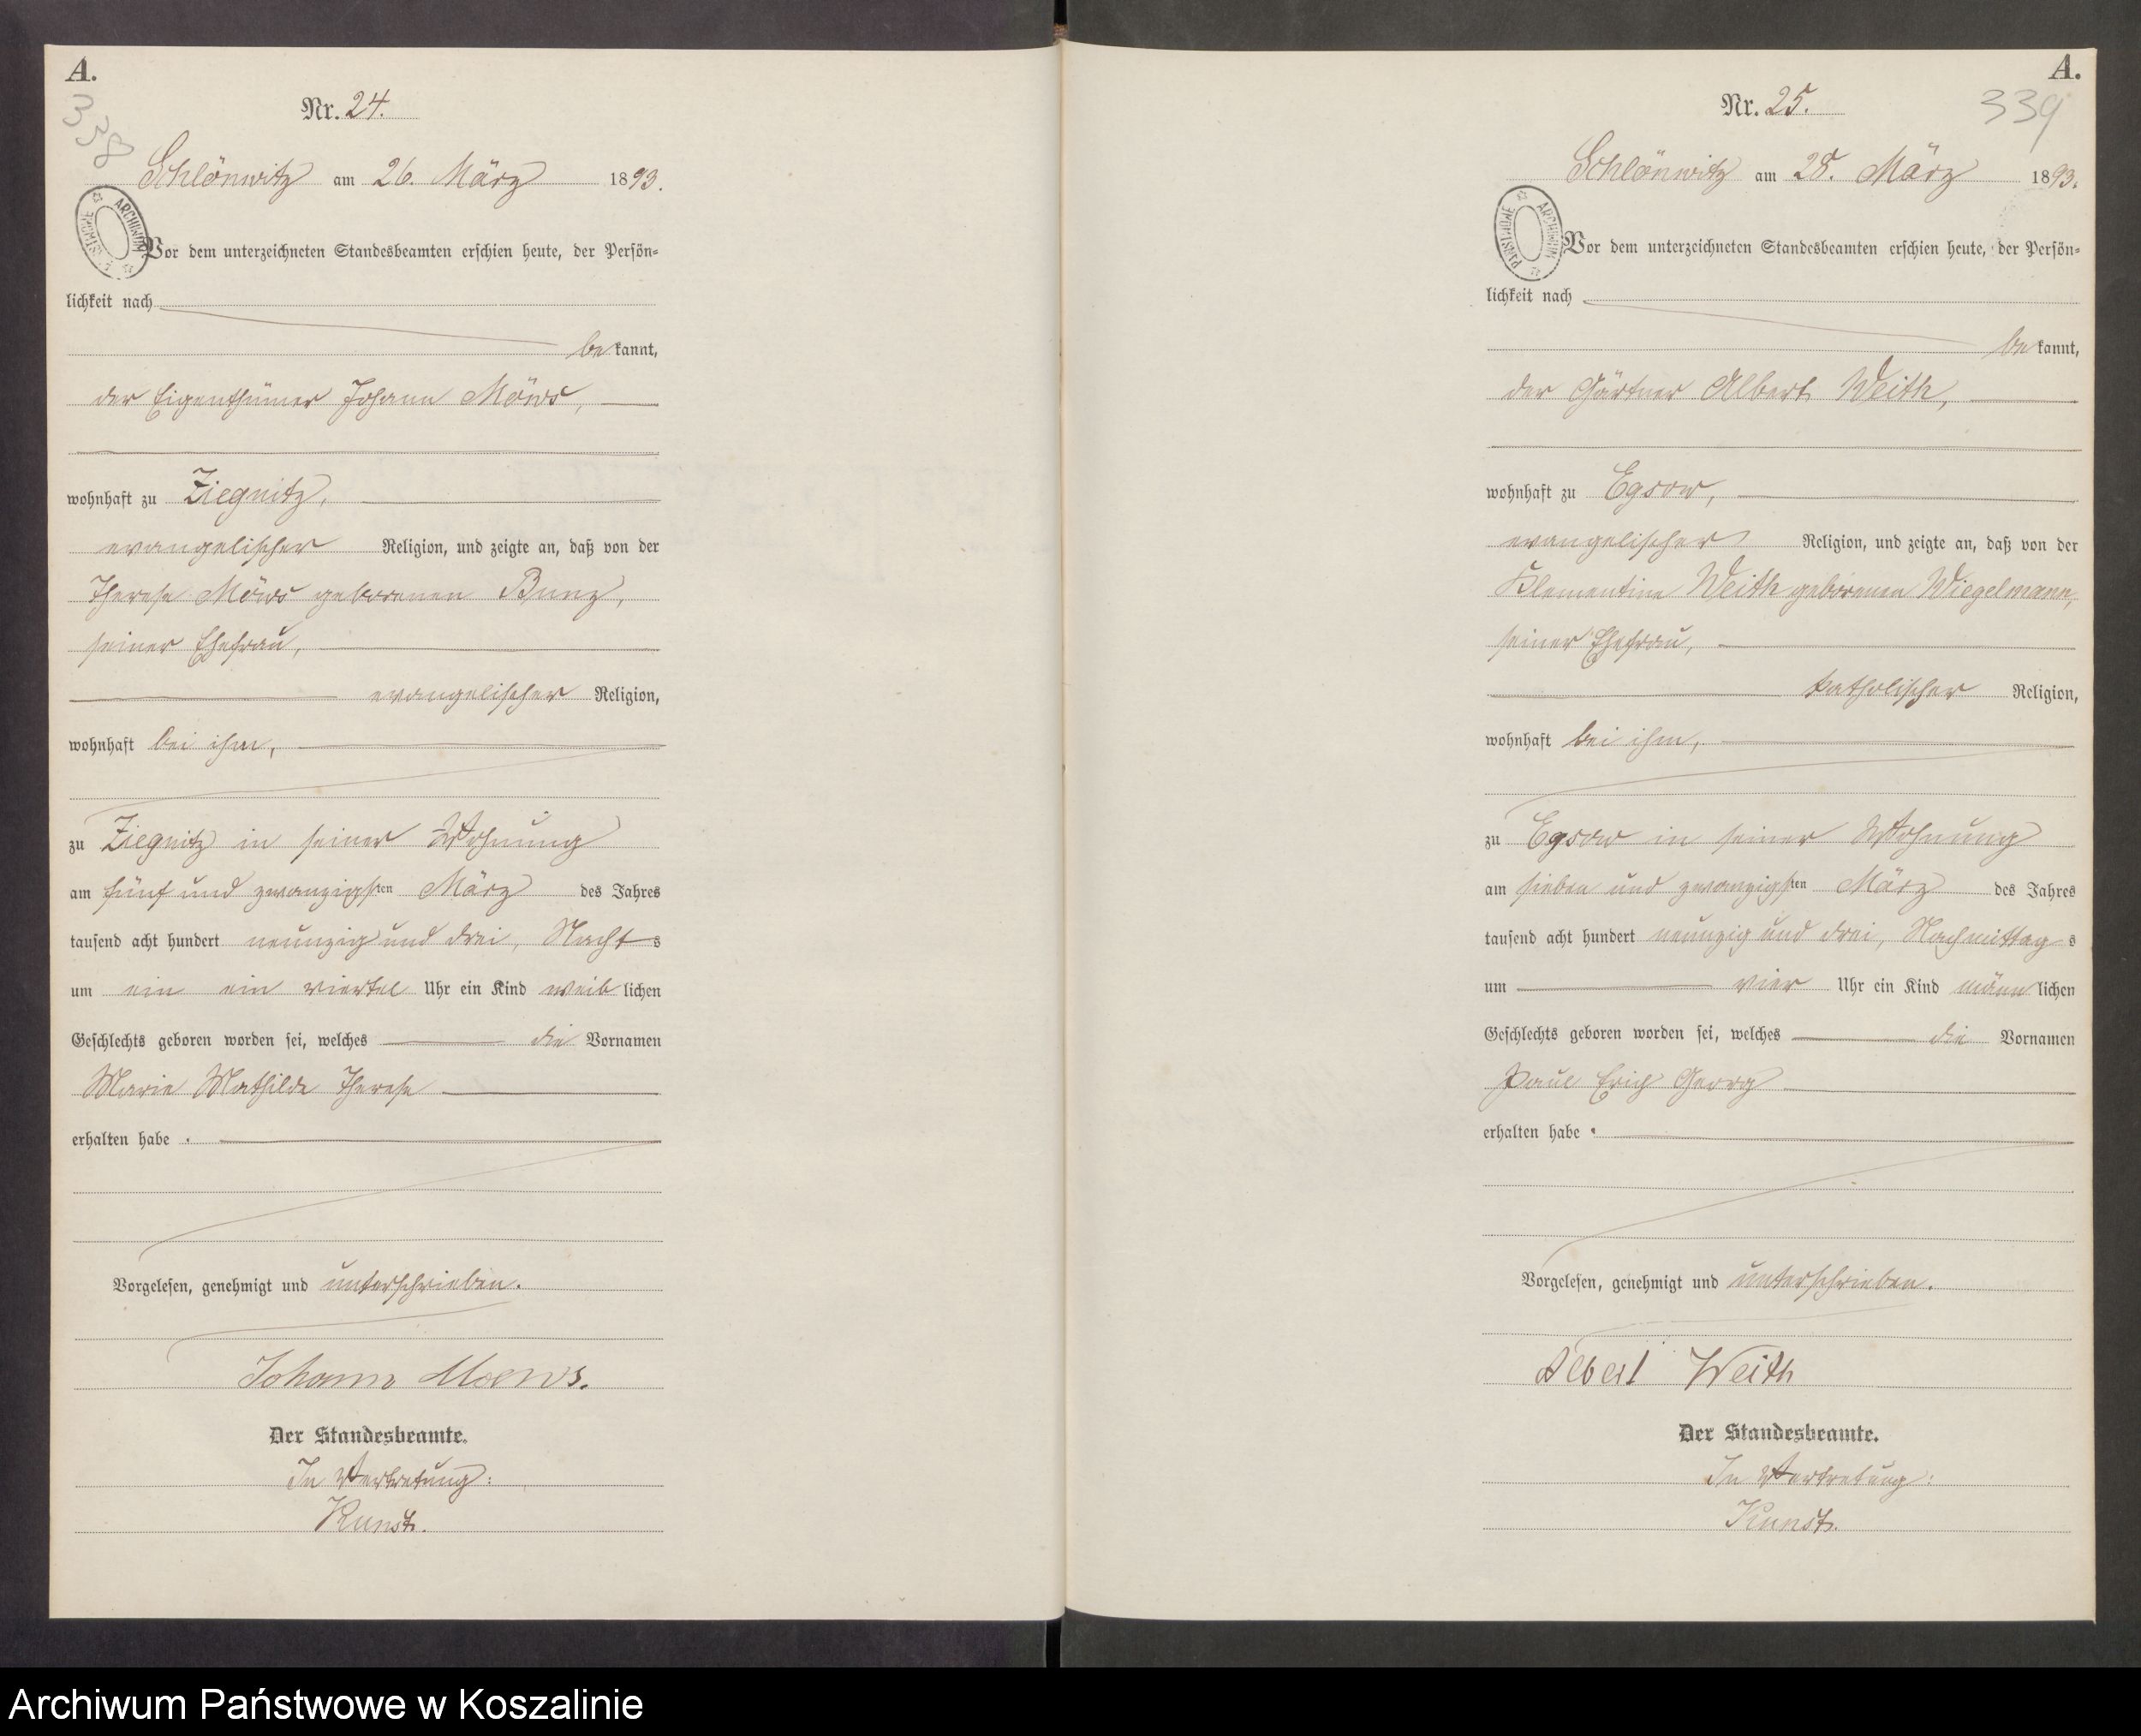 A.
338
Nr. 24.
Schlönwitz am 26. März 1893.
Vor dem unterzeichneten Standesbeamten erschien heute, der Persön-
lichkeit nach
bekannt,
der Eigenthümer Johann Möws,
wohnhaft zu Ziegnitz,
evangelischer Religion, und zeigte an, daß von der
Therese Möws geborenen Bunz,
seiner Ehefrau,
evangelischer Religion,
wohnhaft bei ihm,
zu Ziegnitz in seiner Wohnung
am fünf und zwanzigsten März des Jahres
tausend acht hundert neunzig und drei, Nachts
um ein ein viertel Uhr ein Kind weiblichen
Geschlechts geboren worden sei, welches die Vornamen
Marie Mathilde Therese
erhalten habe.
Vorgelesen, genehmigt und unterschrieben.
Johann Moews.
Der Standesbeamte.
In Vertretung:
Kunst.
ARCHIWUM PAŃSTWOWE
A.
339
Nr. 25.
Schlönwitz am 28. März 1893.
Vor dem unterzeichneten Standesbeamten erschien heute, der Persön-
lichkeit nach
bekannt,
der Gärtner Albert Weith,
wohnhaft zu Egsow,
evangelischer Religion, und zeigte an, daß von der
Klementine Weith geborenen Wiegelmann,
seiner Ehefrau,
katholischer Religion,
wohnhaft bei ihm,
zu Egsow in seiner Wohnung
am sieben und zwanzigsten März des Jahres
tausend acht hundert neunzig und drei, Nachmittags
um vier Uhr ein Kind männlichen
Geschlechts geboren worden sei, welches die Vornamen
Paul Erich Georg
erhalten habe.
Vorgelesen, genehmigt und unterschrieben.
Albert Weith
Der Standesbeamte.
In Vertretung:
Kunst.
ARCHIWUM PAŃSTWOWE
Archiwum Państwowe w Koszalinie